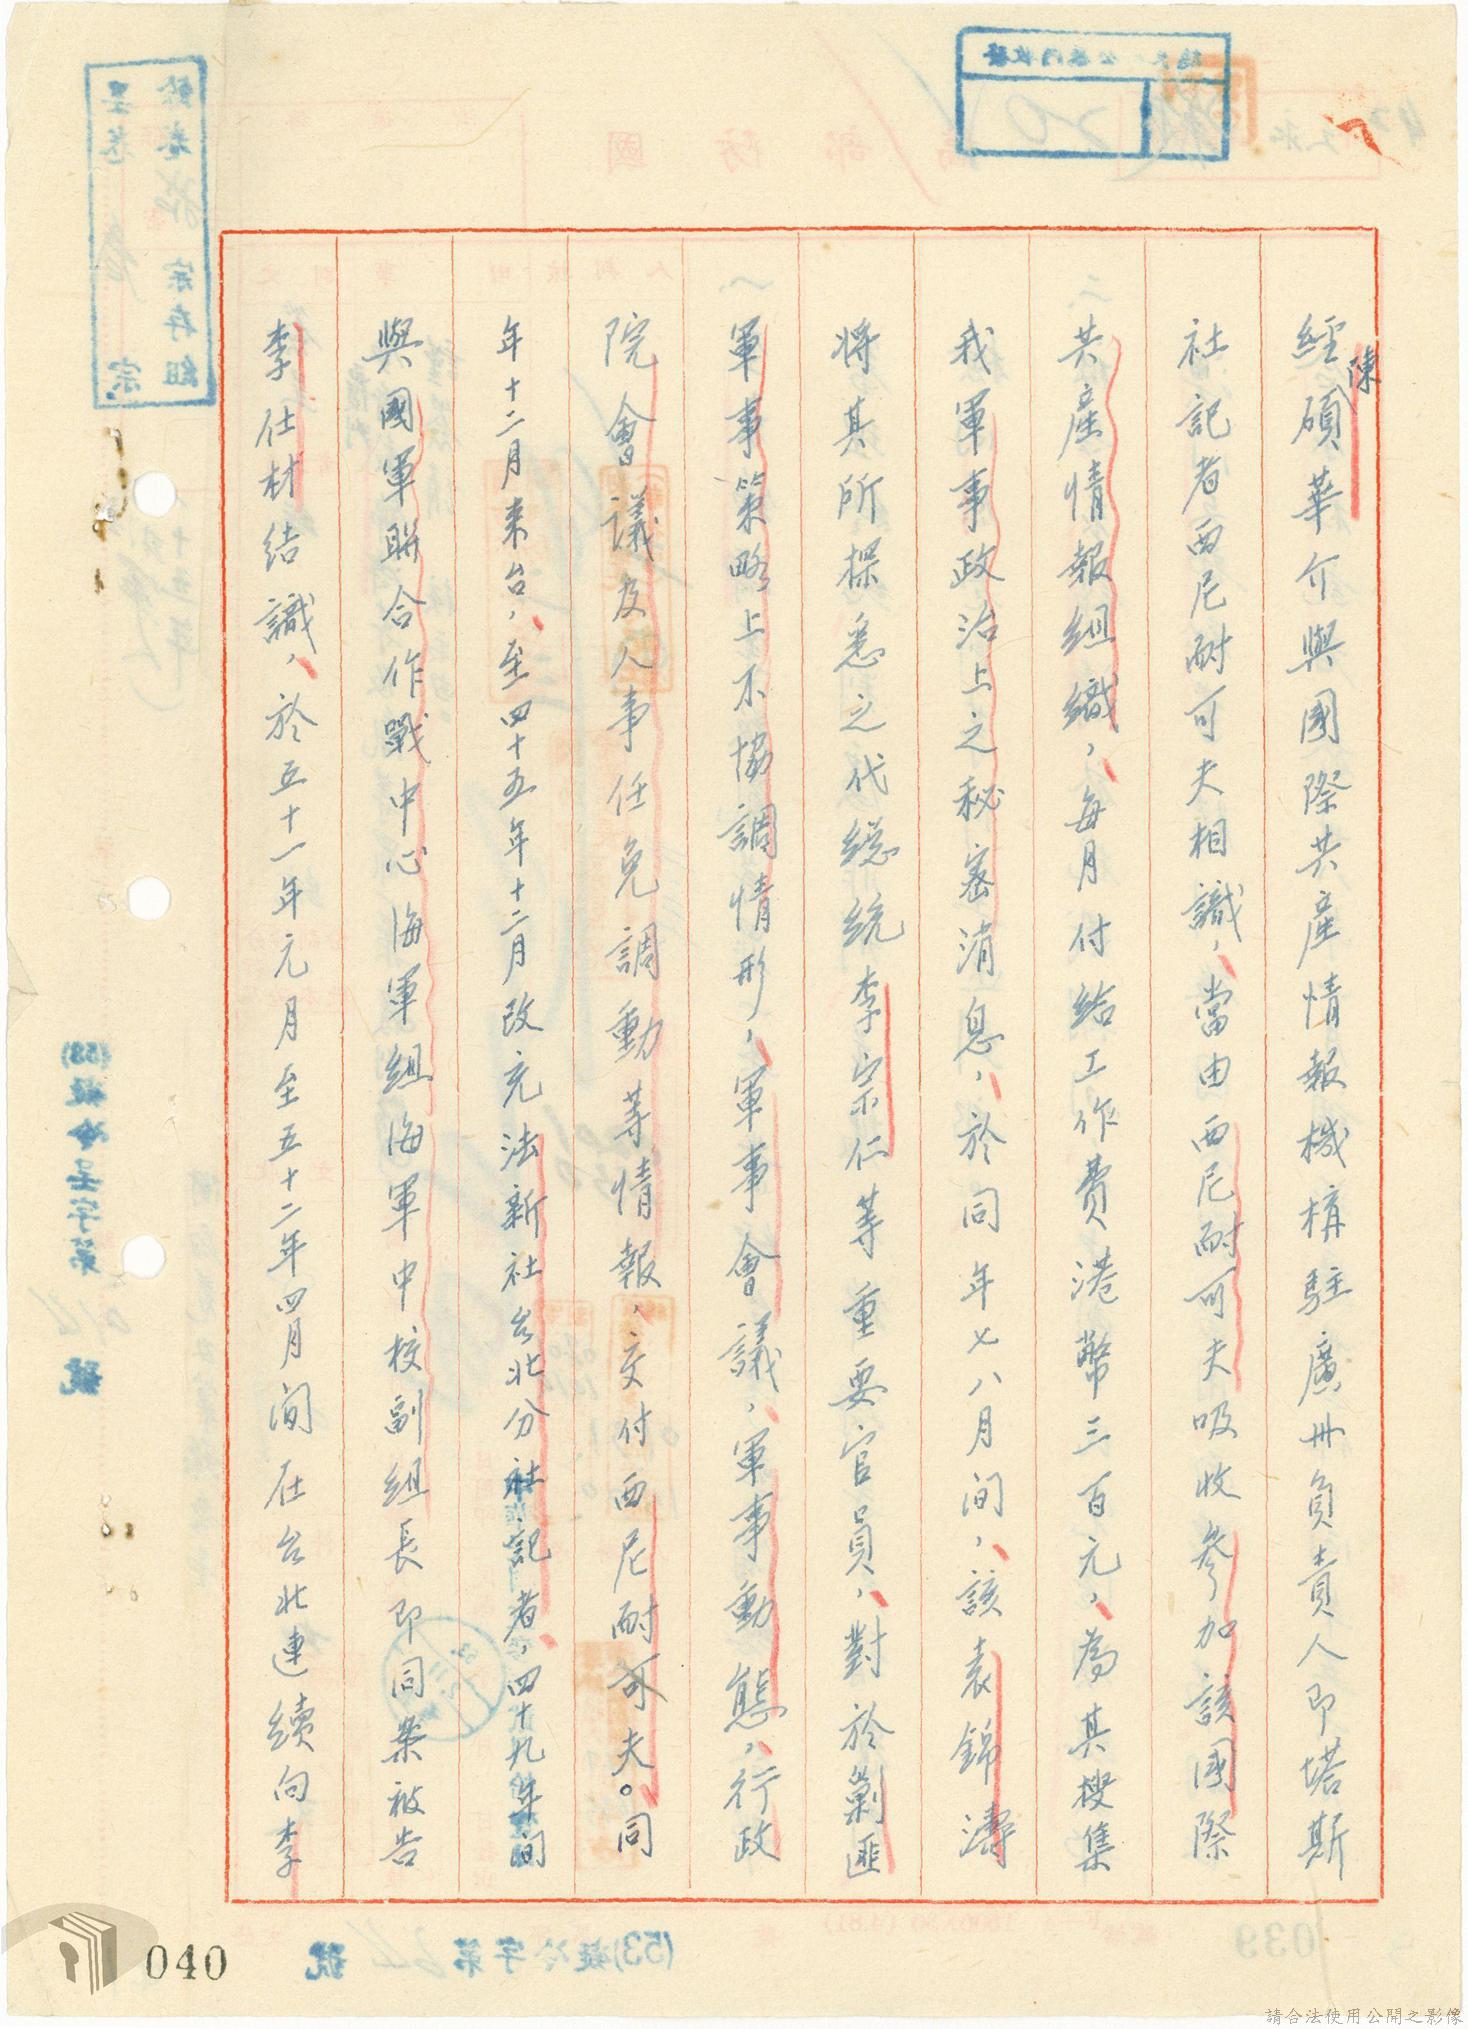 經陳碩華介與國際共產情報機構駐廣州負責人即塔斯
社記者西尼耐可夫相識，當由西尼耐可夫吸收參加該國際
共產情報組織，每月付給工作費港幣三百元，為其搜集
我軍事政治上之秘密消息，於同年七八月間，該袁錦濤
將其所探悉之代總統李宗仁等重要官員，對於剿匪
軍事策略上不協調情形，軍事會議，軍事動態，行政
院會議及人事任免調動等情報，交付西尼耐可夫。同
年十二月來台，至四十五年十二月改充法新社台北分社記者，四十九年間
與國軍聯合作戰中心海軍組海軍中校副組長即同案被告
李仕材結識，於五十一年元月至五十二年四月間在台北連續向李
040
請合法使用公開之影像